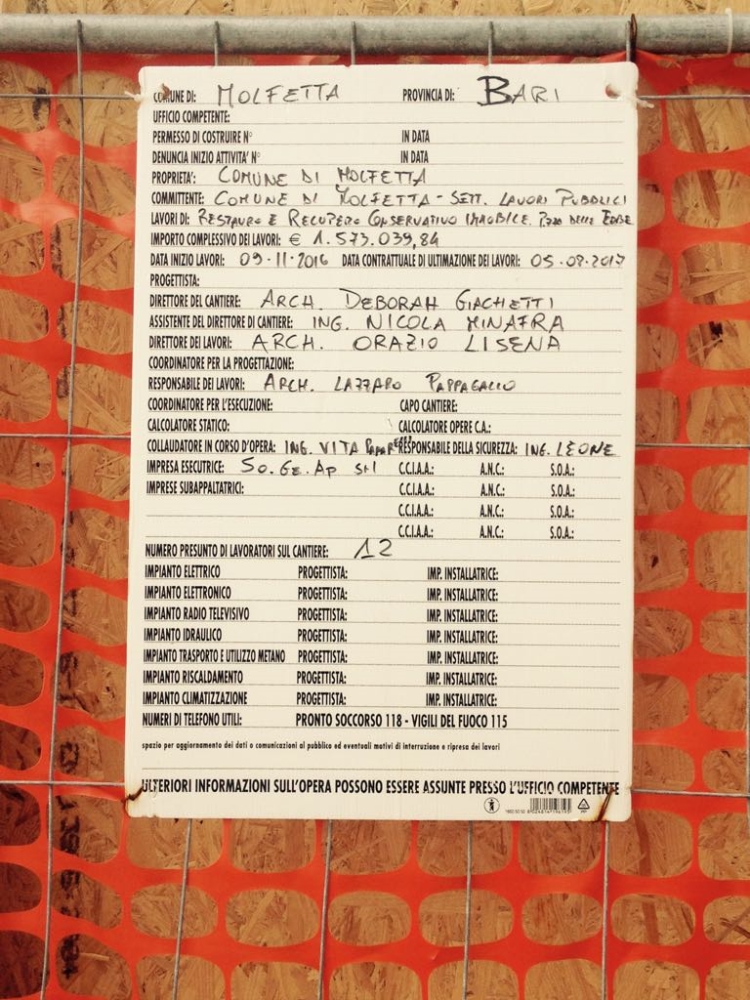 COMUNE DI: MOLFETTA PROVINCIA DI: BARI
UFFICIO COMPETENTE:
PERMESSO DI COSTRUIRE N° IN DATA
DENUNCIA INIZIO ATTIVITA' N° IN DATA
PROPRIETA': COMUNE DI MOLFETTA
COMMITTENTE: COMUNE DI MOLFETTA - SETT. LAVORI PUBBLICI
LAVORI DI: RESTAURO E RECUPERO CONSERVATIVO IMMOBILE P.ZZA DELLE ERBE
IMPORTO COMPLESSIVO DEI LAVORI: € 1.573.039,84
DATA INIZIO LAVORI: 09-11-2016 DATA CONTRATTUALE DI ULTIMAZIONE DEI LAVORI: 05-09-2017
PROGETTISTA:
DIRETTORE DEL CANTIERE: ARCH. DEBORAH GIACHETTI
ASSISTENTE DEL DIRETTORE DI CANTIERE: ING. NICOLA MINAFRA
DIRETTORE DEI LAVORI: ARCH. ORAZIO LISENA
COORDINATORE PER LA PROGETTAZIONE:
RESPONSABILE DEI LAVORI: ARCH. LAZZARO PAPPAGALLO
COORDINATORE PER L'ESECUZIONE: CAPO CANTIERE:
CALCOLATORE STATICO: CALCOLATORE OPERE C.A.:
COLLAUDATORE IN CORSO D'OPERA: ING. VITA RESPONSABILE DELLA SICUREZZA: ING. LEONE
IMPRESA ESECUTRICE: So.Ge.Ap Srl C.C.I.A.A.: A.N.C.: S.O.A.:
IMPRESE SUBAPPALTATRICI: C.C.I.A.A.: A.N.C.: S.O.A.:
C.C.I.A.A.: A.N.C.: S.O.A.:
C.C.I.A.A.: A.N.C.: S.O.A.:
NUMERO PRESUNTO DI LAVORATORI SUL CANTIERE: 12
IMPIANTO ELETTRICO PROGETTISTA: IMP. INSTALLATRICE:
IMPIANTO ELETTRONICO PROGETTISTA: IMP. INSTALLATRICE:
IMPIANTO RADIO TELEVISIVO PROGETTISTA: IMP. INSTALLATRICE:
IMPIANTO IDRAULICO PROGETTISTA: IMP. INSTALLATRICE:
IMPIANTO TRASPORTO E UTILIZZO METANO PROGETTISTA: IMP. INSTALLATRICE:
IMPIANTO RISCALDAMENTO PROGETTISTA: IMP. INSTALLATRICE:
IMPIANTO CLIMATIZZAZIONE PROGETTISTA: IMP. INSTALLATRICE:
NUMERI DI TELEFONO UTILI: PRONTO SOCCORSO 118 - VIGILI DEL FUOCO 115
spazio per aggiornamento dei dati o comunicazioni al pubblico ed eventuali motivi di interruzione e ripresa dei lavori
ULTERIORI INFORMAZIONI SULL'OPERA POSSONO ESSERE ASSUNTE PRESSO L'UFFICIO COMPETENTE